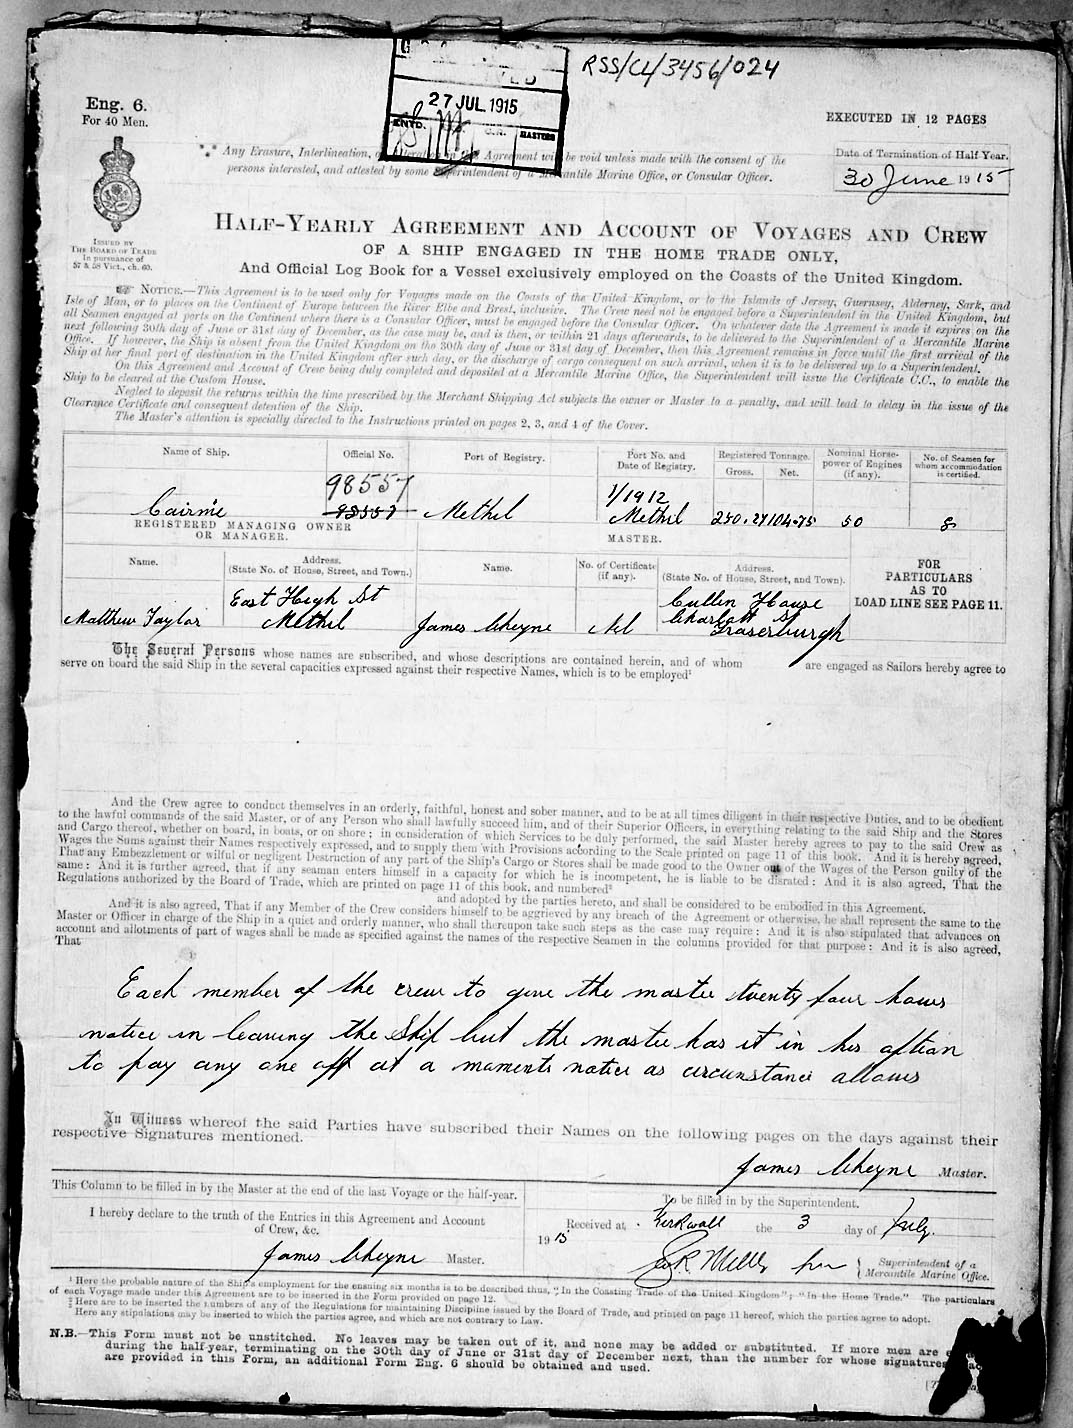 RSS/CL/3456/024
27 JUL 1915
ENTD.
G.R.
MASTERS
Eng. 6.
For 40 Men.
EXECUTED IN 12 PAGES
Any Erasure, Interlineation, or Alteration in this Agreement will be void unless made with the consent of the
persons interested, and attested by some Superintendent of a Mercantile Marine Office, or Consular Officer.
Date of Termination of Half-Year.
30 June 1915
ISSUED BY
THE BOARD OF TRADE
In pursuance of
57 & 58 Vict., ch. 60.
HALF-YEARLY AGREEMENT AND ACCOUNT OF VOYAGES AND CREW
OF A SHIP ENGAGED IN THE HOME TRADE ONLY,
And Official Log Book for a Vessel exclusively employed on the Coasts of the United Kingdom.
☞ NOTICE.—This Agreement is to be used only for Voyages made on the Coasts of the United Kingdom, or to the Islands of Jersey, Guernsey, Alderney, Sark, and
Isle of Man, or to places on the Continent of Europe between the River Elbe and Brest, inclusive. The Crew need not be engaged before a Superintendent in the United Kingdom, but
all Seamen engaged at ports on the Continent where there is a Consular Officer, must be engaged before the Consular Officer. On whatever date the Agreement is made it expires on the
next following 30th day of June or 31st day of December, as the case may be, and is then, or within 21 days afterwards, to be delivered to the Superintendent of a Mercantile Marine
Office. If however, the Ship is absent from the United Kingdom on the 30th day of June or 31st day of December, then this Agreement remains in force until the first arrival of the
Ship at her final port of destination in the United Kingdom after such day, or the discharge of cargo consequent on such arrival, when it is to be delivered up to a Superintendent.
On this Agreement and Account of Crew being duly completed and deposited at a Mercantile Marine Office, the Superintendent will issue the Certificate C.C., to enable the
Ship to be cleared at the Custom House.
Neglect to deposit the returns within the time prescribed by the Merchant Shipping Act subjects the owner or Master to a penalty, and will lead to delay in the issue of the
Clearance Certificate and consequent detention of the Ship.
The Master's attention is specially directed to the Instructions printed on pages 2, 3, and 4 of the Cover.
Name of Ship. Official No. Port of Registry. Port No. and Date of Registry. Registered Tonnage. Gross. Net. Nominal Horse-power of Engines (if any). No. of Seamen for whom accommodation is certified.
98557 1/1912
Cairnie 98557 Methil Methil 250.27 104.75 50 8
REGISTERED MANAGING OWNER OR MANAGER. MASTER.
Name. Address. (State No. of House, Street, and Town.) Name. No. of Certificate (if any). Address. (State No. of House, Street, and Town).
FOR
PARTICULARS
AS TO
LOAD LINE SEE PAGE 11.
East High St Cullen House
Charlott St
Matthew Taylor Methil James Cheyne Nil Fraserburgh
The Several Persons whose names are subscribed, and whose descriptions are contained herein, and of whom are engaged as Sailors hereby agree to
serve on board the said Ship in the several capacities expressed against their respective Names, which is to be employed¹
And the Crew agree to conduct themselves in an orderly, faithful, honest and sober manner, and to be at all times diligent in their respective Duties, and to be obedient
to the lawful commands of the said Master, or of any Person who shall lawfully succeed him, and of their Superior Officers, in everything relating to the said Ship and the Stores
and Cargo thereof, whether on board, in boats, or on shore; in consideration of which Services to be duly performed, the said Master hereby agrees to pay to the said Crew as
Wages the Sums against their Names respectively expressed, and to supply them with Provisions according to the Scale printed on page 11 of this book. And it is hereby agreed,
That any Embezzlement or wilful or negligent Destruction of any part of the Ship's Cargo or Stores shall be made good to the Owner out of the Wages of the Person guilty of the
same: And it is further agreed, that if any seaman enters himself in a capacity for which he is incompetent, he is liable to be disrated: And it is also agreed, That the
Regulations authorized by the Board of Trade, which are printed on page 11 of this book, and numbered²
and adopted by the parties hereto, and shall be considered to be embodied in this Agreement.
And it is also agreed, That if any Member of the Crew considers himself to be aggrieved by any breach of the Agreement or otherwise, he shall represent the same to the
Master or Officer in charge of the Ship in a quiet and orderly manner, who shall thereupon take such steps as the case may require: And it is also stipulated that advances on
account and allotments of part of wages shall be made as specified against the names of the respective Seamen in the columns provided for that purpose: And it is also agreed,
That
Each member of the crew to give the master twenty four hours
notice in leaving the Ship but the master has it in his oftion
to pay any one off at a moments notice as circumstance allows
In Witness whereof the said Parties have subscribed their Names on the following pages on the days against their
respective Signatures mentioned.
James Cheyne Master.
This Column to be filled in by the Master at the end of the last Voyage or the half-year.
I hereby declare to the truth of the Entries in this Agreement and Account
of Crew, &c.
James Cheyne Master.
To be filled in by the Superintendent.
Received at Kirkwall the 3 day of July.
1915
Superintendent of a
Mercantile Marine Office.
¹ Here the probable nature of the Ship's employment for the ensuing six months is to be described thus, "In the Coasting Trade of the United Kingdom"; "In the Home Trade." The particulars
of each Voyage made under this Agreement are to be inserted in the Form provided on page 12.
² Here are to be inserted the numbers of any of the Regulations for maintaining Discipline issued by the Board of Trade, and printed on page 11 hereof, which the parties agree to adopt.
Here any stipulations may be inserted to which the parties agree, and which are not contrary to Law.
N.B.—This Form must not be unstitched. No leaves may be taken out of it, and none may be added or substituted. If more men are
during the half-year, terminating on the 30th day of June or 31st day of December next, than the number for whose signatures
are provided in this Form, an additional Form Eng. 6 should be obtained and used.